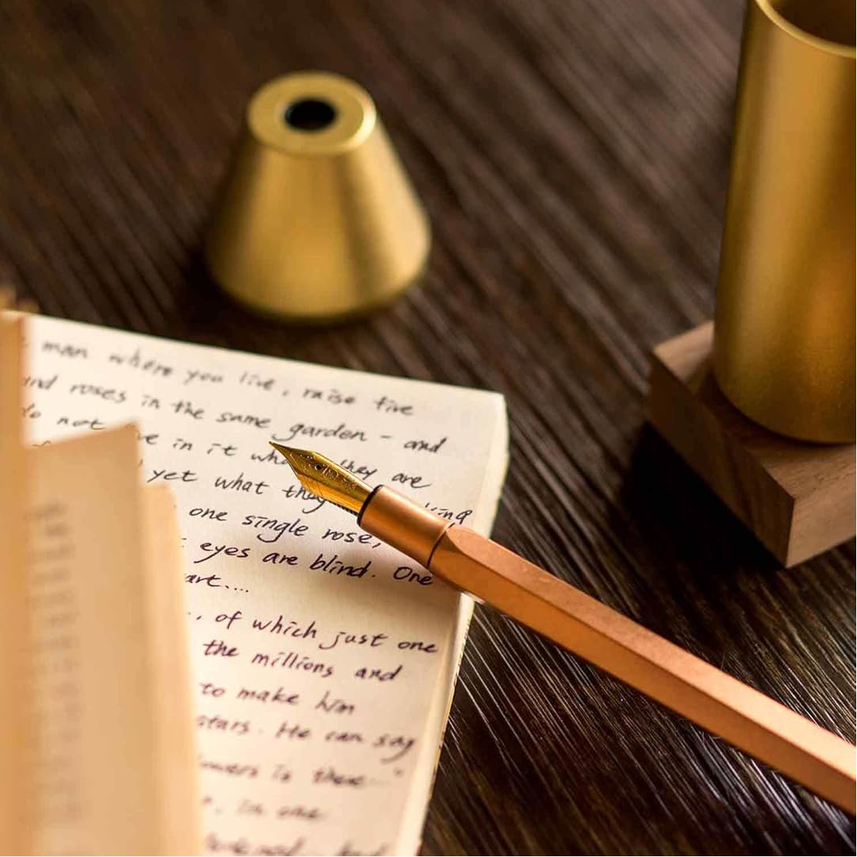 man where you live, raise five
and roses in the same garden - and
do not in it they are
yet what they
one single rose,
eyes are blind. One
art....
., of which just one
the millions and
to make him
stars. He can say
is there..."
, in one